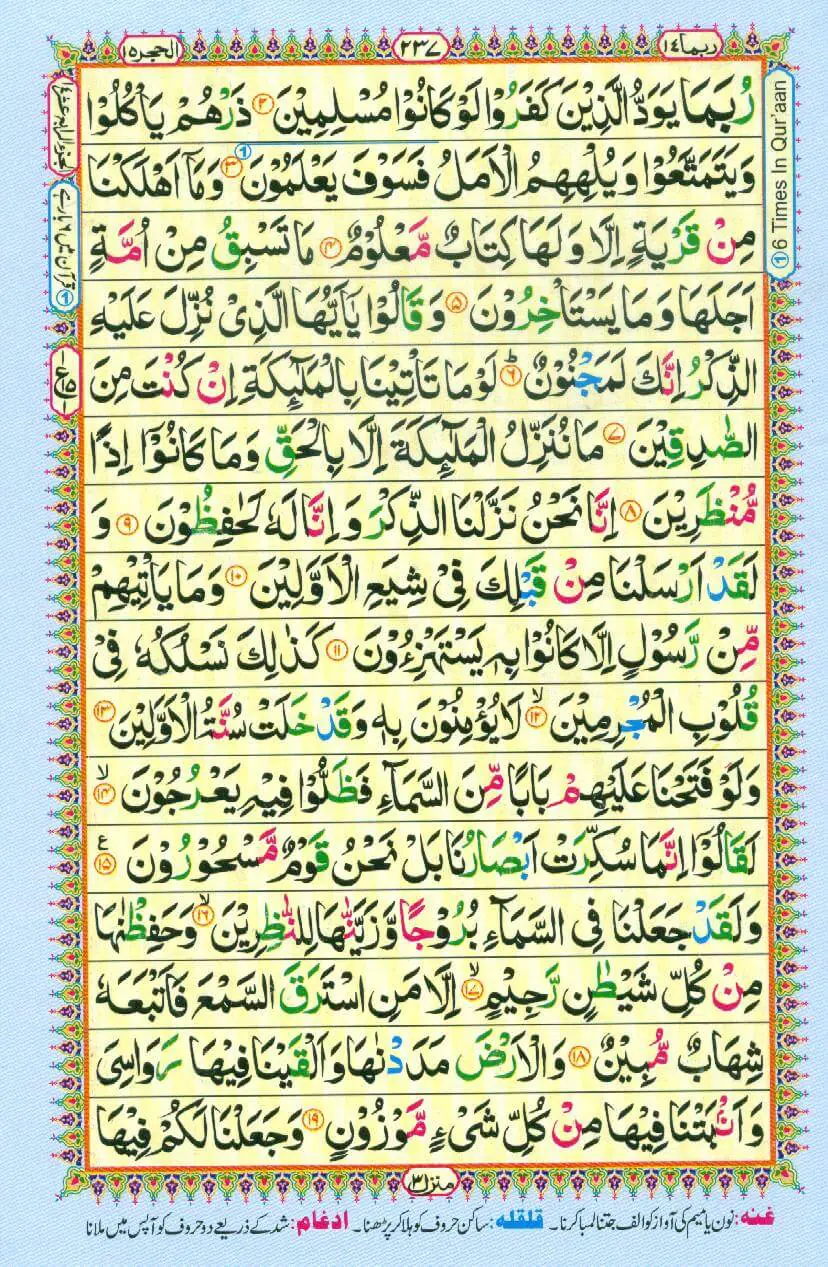 ربما ١٤
٢٣٧
الحجر ١٥
رُبَمَا يَوَدُّ الَّذِيْنَ كَفَرُوْا لَوْ كَانُوْا مُسْلِمِيْنَ ۲ ذَرْهُمْ يَاْكُلُوْا
وَيَتَمَتَّعُوْا وَيُلْهِهِمُ الْاَمَلُ فَسَوْفَ يَعْلَمُوْنَ ۳ وَمَاۤ اَهْلَكْنَا
مِنْ قَرْيَةٍ اِلَّا وَلَهَا كِتَابٌ مَّعْلُوْمٌ ۴ مَا تَسْبِقُ مِنْ اُمَّةٍ
اَجَلَهَا وَمَا يَسْتَاْخِرُوْنَ ۵ وَقَالُوْا يٰۤاَيُّهَا الَّذِيْ نُزِّلَ عَلَيْهِ
الذِّكْرُ اِنَّكَ لَمَجْنُوْنٌ ۶ؕ لَوْ مَا تَاْتِيْنَا بِالْمَلٰٓئِكَةِ اِنْ كُنْتَ مِنَ
الصّٰدِقِيْنَ ۷ مَا نُنَزِّلُ الْمَلٰٓئِكَةَ اِلَّا بِالْحَقِّ وَمَا كَانُوْۤا اِذًا
مُّنْظَرِيْنَ ۸ اِنَّا نَحْنُ نَزَّلْنَا الذِّكْرَ وَاِنَّا لَهٗ لَحٰفِظُوْنَ ۹ وَ
لَقَدْ اَرْسَلْنَا مِنْ قَبْلِكَ فِيْ شِيَعِ الْاَوَّلِيْنَ ۱۰ وَمَا يَاْتِيْهِمْ
مِّنْ رَّسُوْلٍ اِلَّا كَانُوْا بِهٖ يَسْتَهْزِءُوْنَ ۱۱ كَذٰلِكَ نَسْلُكُهٗ فِيْ
قُلُوْبِ الْمُجْرِمِيْنَ ۱۲ۙ لَا يُؤْمِنُوْنَ بِهٖ وَقَدْ خَلَتْ سُنَّةُ الْاَوَّلِيْنَ ۱۳
وَلَوْ فَتَحْنَا عَلَيْهِمْ بَابًا مِّنَ السَّمَآءِ فَظَلُّوْا فِيْهِ يَعْرُجُوْنَ ۱۴ۙ
لَقَالُوْۤا اِنَّمَا سُكِّرَتْ اَبْصَارُنَا بَلْ نَحْنُ قَوْمٌ مَّسْحُوْرُوْنَ ۱۵ ع
وَلَقَدْ جَعَلْنَا فِي السَّمَآءِ بُرُوْجًا وَّزَيَّنّٰهَا لِلنّٰظِرِيْنَ ۱۶ۙ وَحَفِظْنٰهَا
مِنْ كُلِّ شَيْطٰنٍ رَّجِيْمٍ ۱۷ۙ اِلَّا مَنِ اسْتَرَقَ السَّمْعَ فَاَتْبَعَهٗ
شِهَابٌ مُّبِيْنٌ ۱۸ وَالْاَرْضَ مَدَدْنٰهَا وَاَلْقَيْنَا فِيْهَا رَوَاسِيَ
وَاَنْۢبَتْنَا فِيْهَا مِنْ كُلِّ شَيْءٍ مَّوْزُوْنٍ ۱۹ وَجَعَلْنَا لَكُمْ فِيْهَا
① 6 Times In Qur'aan
① قرآن میں ٦ بارہے
منزل ٣
غنه: نون یا میم کی آواز کو الف جتنا لمبا کرنا۔ قلقله: ساکن حروف کو ہلا کر پڑھنا۔ ادغام: شد کے ذریعے دو حروف کو آپس میں ملانا